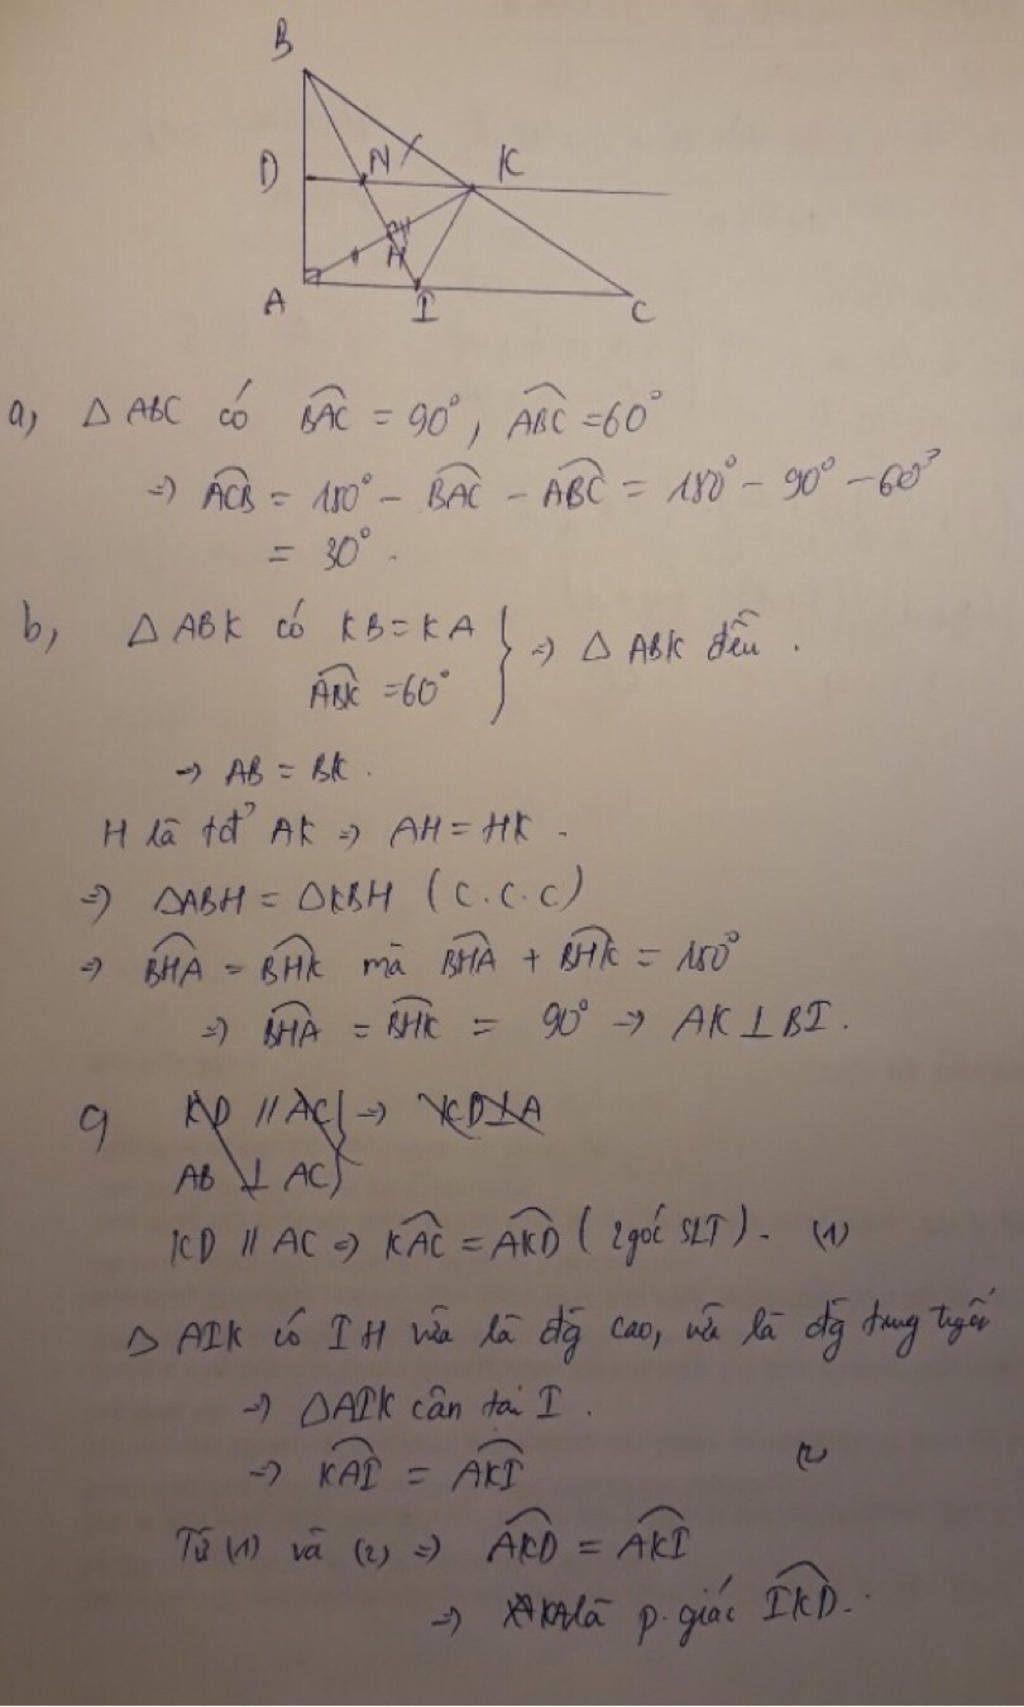 B
D
N
K
H
A
I
C
a, Δ ABC có \widehat{BAC} = 90°, \widehat{ABC} = 60°
=> \widehat{ACB} = 180° - \widehat{BAC} - \widehat{ABC} = 180° - 90° - 60°
= 30°.
b, Δ ABK có KB = KA
\widehat{ABK} = 60° } => Δ ABK đều.
-> AB = BK.
H là tđ' AK => AH = HK.
=> ΔABH = ΔKBH (C.C.C)
=> \widehat{BHA} = \widehat{BHK} mà \widehat{BHA} + \widehat{BHK} = 180°
=> \widehat{BHA} = \widehat{BHK} = 90° -> AK ⊥ BI.
c, KD // AC } => KD ⊥ A
AB ⊥ AC
KD // AC => \widehat{KAC} = \widehat{AKD} (2 góc SLT). (1)
Δ AIK có IH vừa là đg cao, vừa là đg trung tuyến
-> ΔAIK cân tại I.
-> \widehat{KAI} = \widehat{AKI} (2)
Từ (1) và (2) => \widehat{AKD} = \widehat{AKI}
=> KA là p.giác \widehat{IKD}.